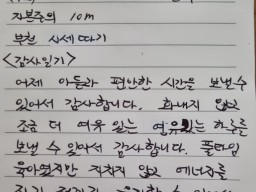 자본주의 10m
부천 시세따기
<감사일기>
어제 아들과 편안한 시간을 보낼수
있어서 감사합니다. 화내지 않고
조금 더 여유 있는 하루를
보낼 수 있어서 감사합니다. 풀타임
육아였지만 지치지 않고 에너지를